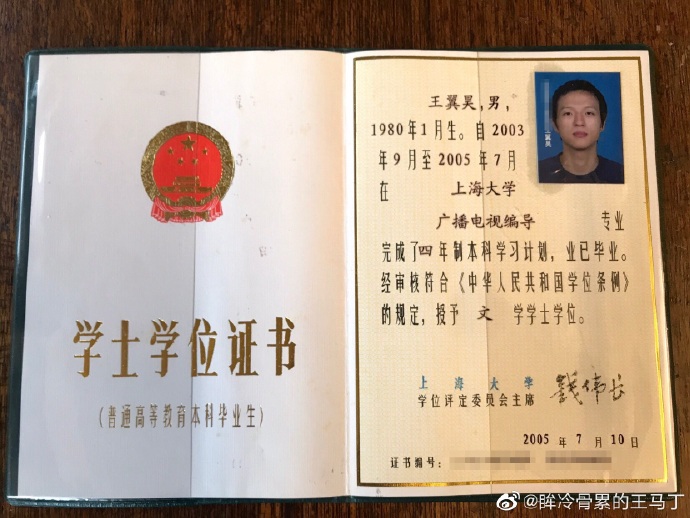 学士学位证书
(普通高等教育本科毕业生)
王翼昊,男,
1980年1月生。自2003
年9月至2005年7月
在 上海大学
广播电视编导 专业
完成了四年制本科学习计划,业已毕业。
经审核符合《中华人民共和国学位条例》
的规定,授予 文 学学士学位。
上海大学
学位评定委员会主席 钱伟长
2005 年 7 月 10 日
证书编号:
王翼昊
@眸冷骨累的王马丁